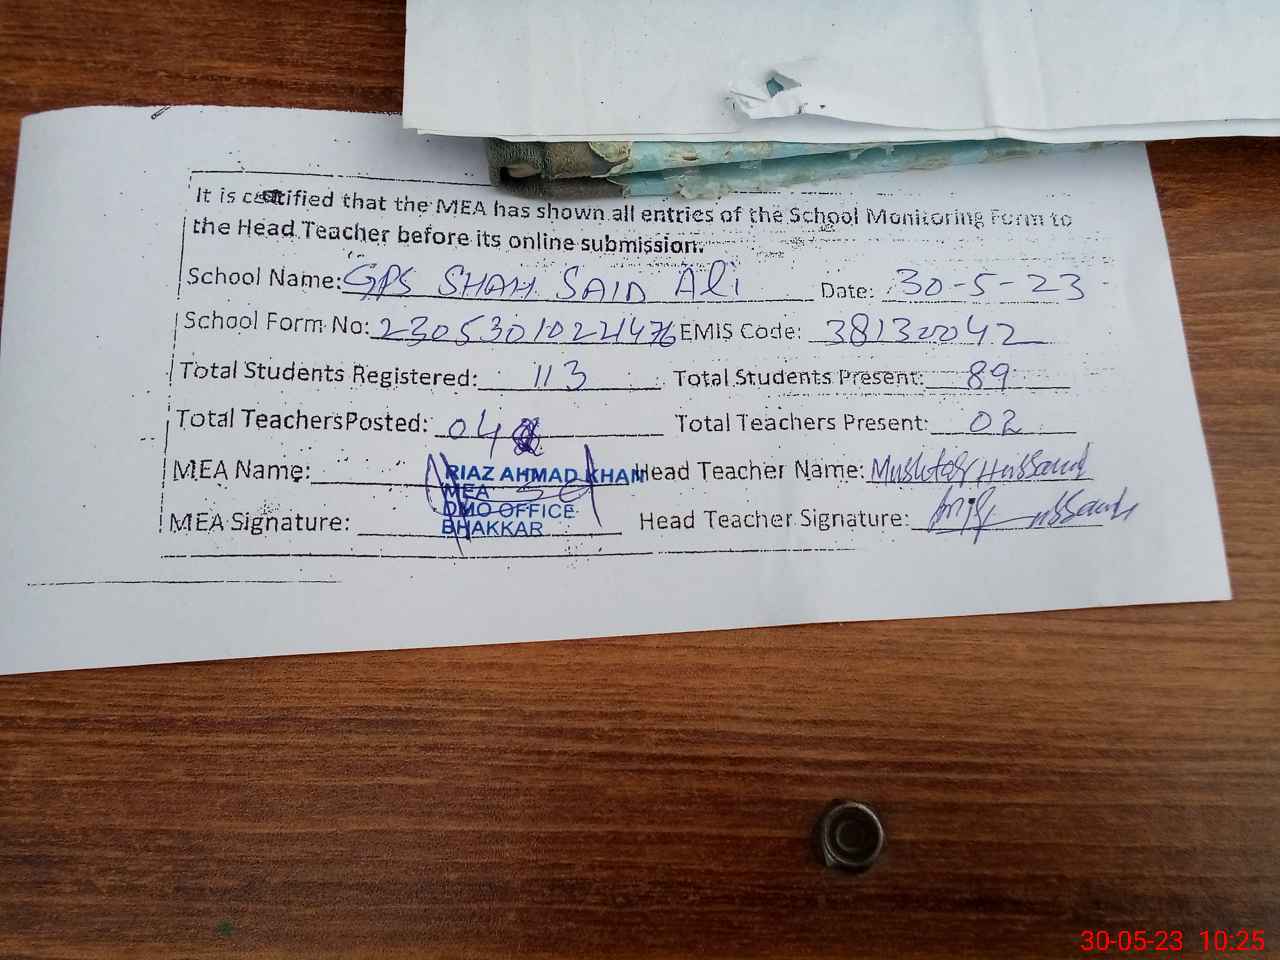 It is certified that the MEA has shown all entries of the School Monitoring Form to
the Head Teacher before its online submission.
School Name: GPS SHAH SAID Ali Date: 30-5-23
School Form No: EMIS Code: 38132042
Total Students Registered: 113 Total Students Present: 89
Total Teachers Posted: 04 Total Teachers Present: 02
MEA Name: RIAZ AHMAD KHAN Head Teacher Name: Hussain
MEA
DMO OFFICE
MEA Signature: BHAKKAR Head Teacher Signature:
30-05-23 10:25